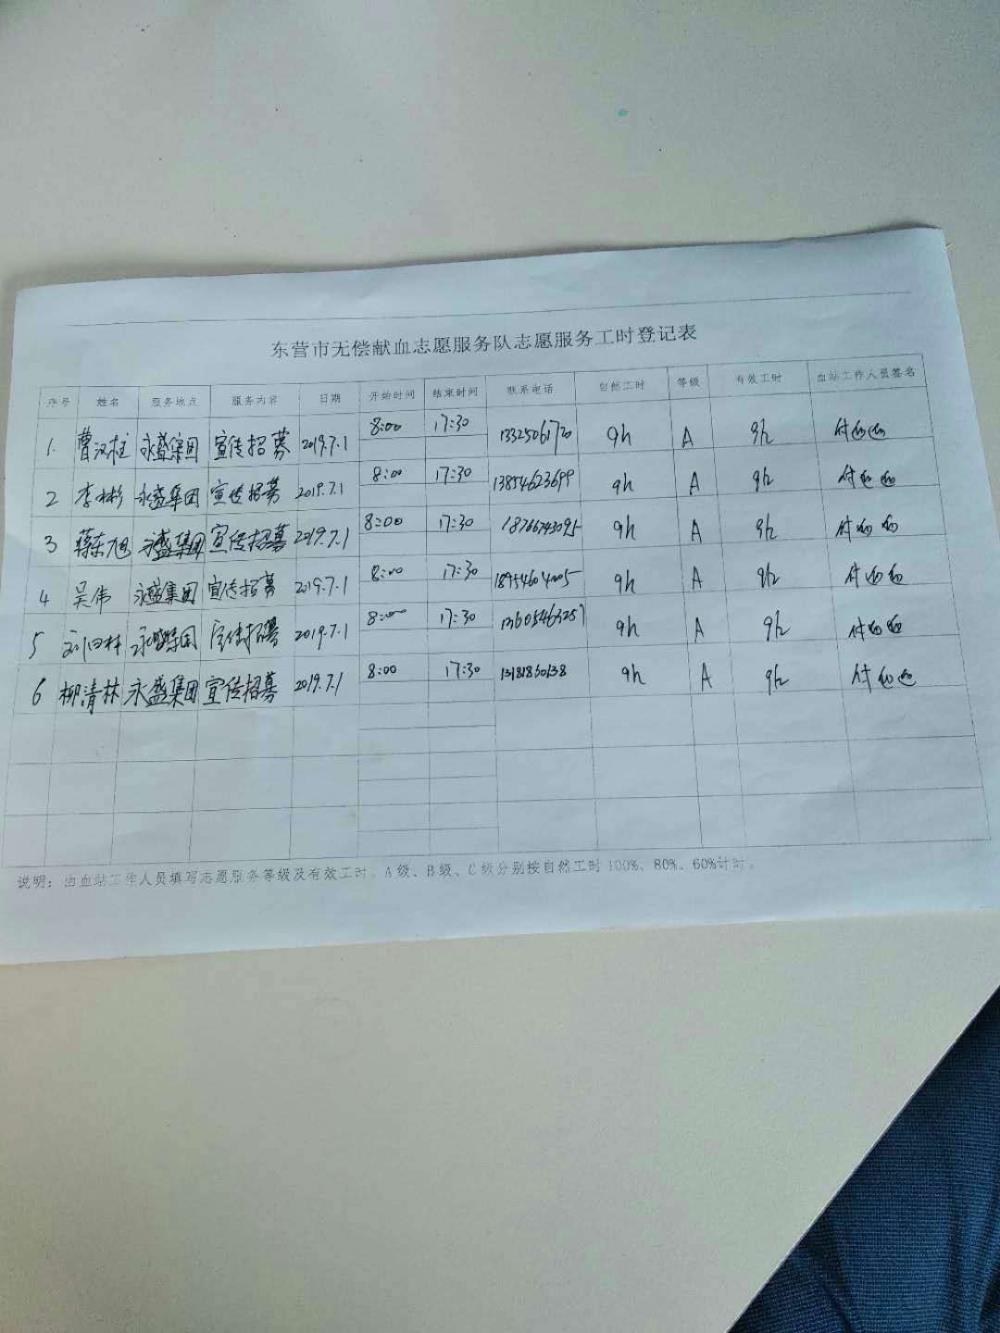 东营市无偿献血志愿服务队志愿服务工时登记表
序号 姓名 服务地点 服务内容 日期 开始时间 结束时间 联系电话 自然工时 等级 有效工时 血站工作人员签名
1. 曹汉柱 永盛集团 宣传招募 2019.7.1 8:00 17:30 13325061720 9h A 9h
2 李彬彬 永盛集团 宣传招募 2019.7.1 8:00 17:30 13854623699 9h A 9h
3 蒋东旭 永盛集团 宣传招募 2019.7.1 8:00 17:30 18766743095 9h A 9h
4 吴伟 永盛集团 宣传招募 2019.7.1 8:00 17:30 18954604005 9h A 9h
5 永盛集团 宣传招募 2019.7.1 8:00 17:30 13605463257 9h A 9h
6 柳清林 永盛集团 宣传招募 2019.7.1 8:00 17:30 13181830138 9h A 9h
说明：由血站工作人员填写志愿服务等级及有效工时，A级、B级、C级分别按自然工时100%、80%、60%计时。